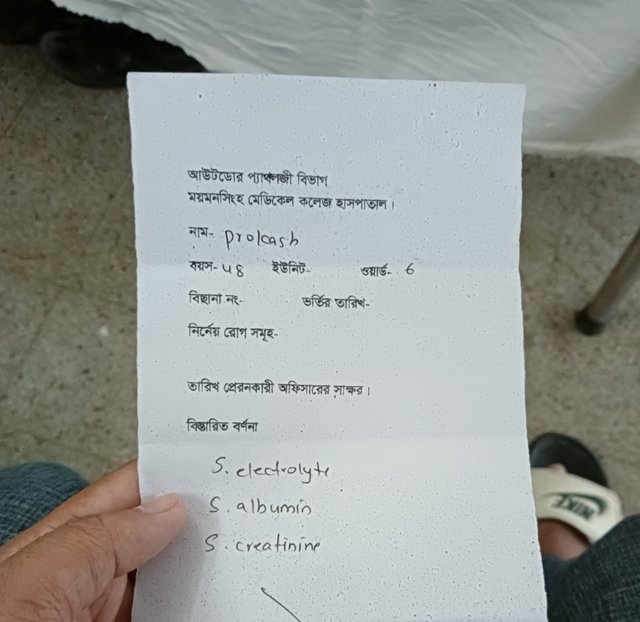 আউটডোর প্যাথলজী বিভাগ
ময়মনসিংহ মেডিকেল কলেজ হাসপাতাল।
নাম- Prolcash
বয়স- 48 ইউনিট- ওয়ার্ড- 6
বিছানা নং- ভর্তির তারিখ-
নির্নেয় রোগ সমূহ-
তারিখ প্রেরনকারী অফিসারের সাক্ষর।
বিস্তারিত বর্ণনা
S. electrolyte
S. albumin
S. creatinine